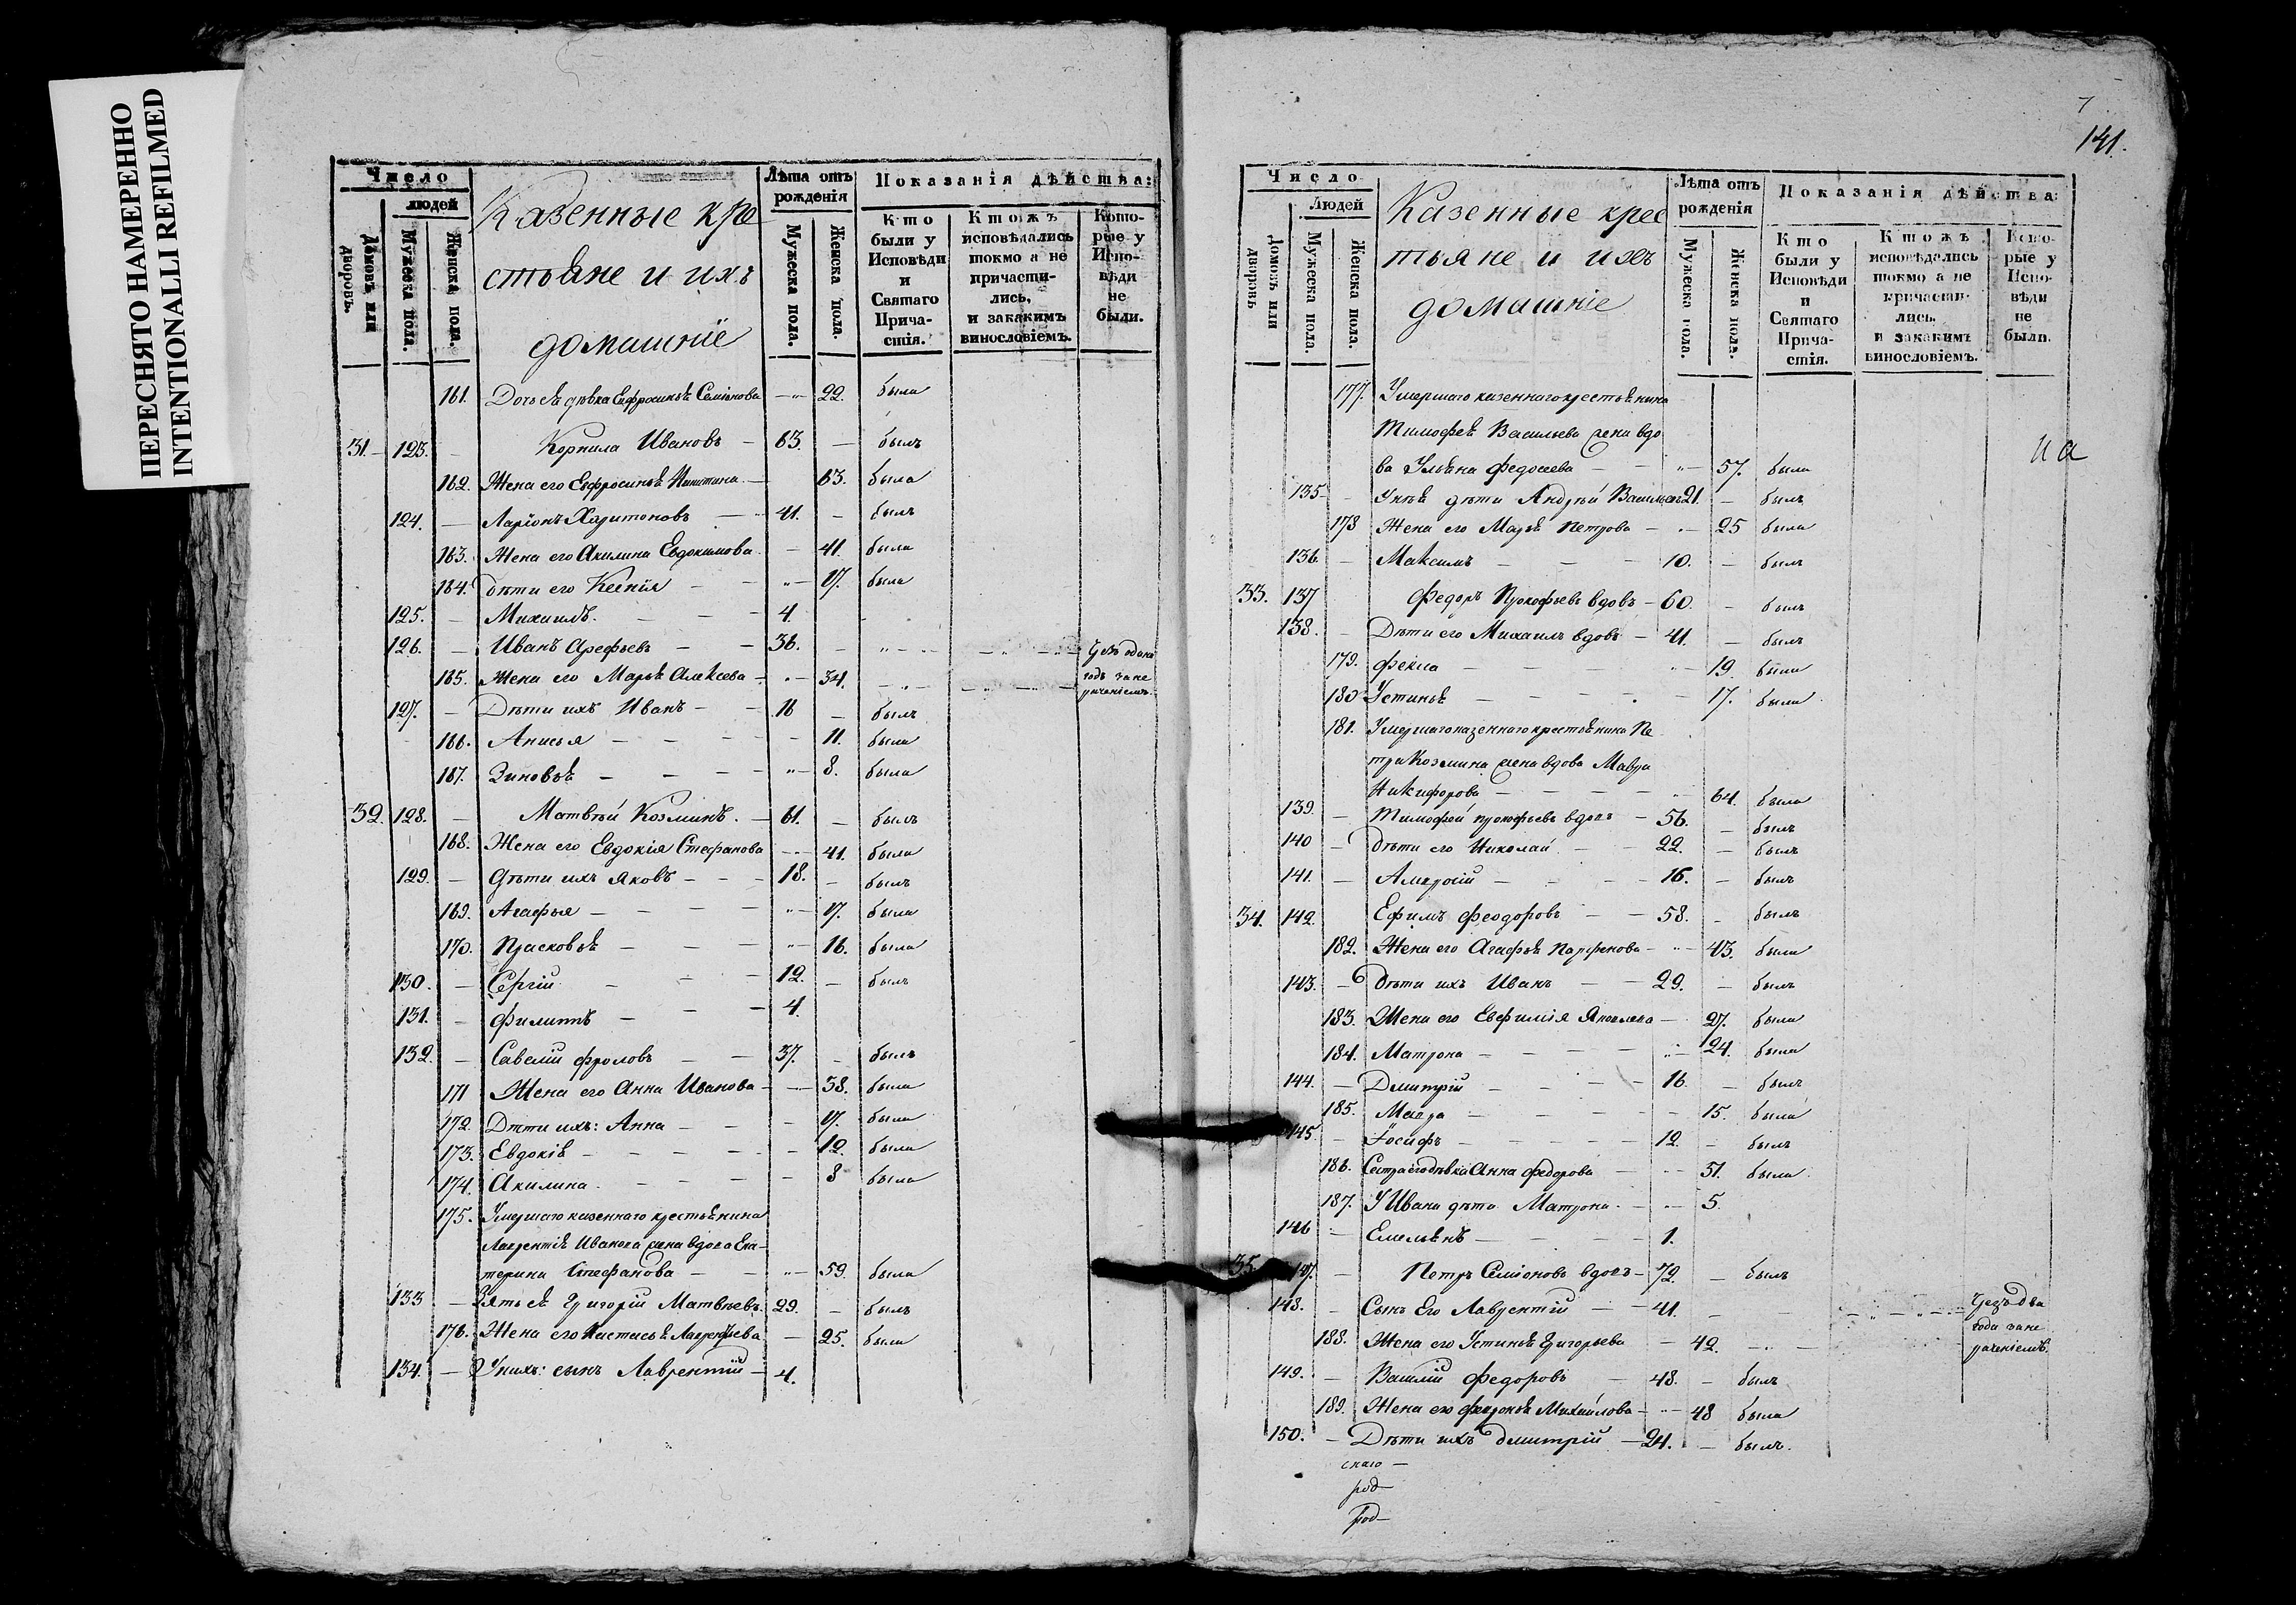 ПЕРЕСНЯТО НАМЕРЕННО
INTENTIONALLI REFILMED
Число
людей
Домовъ или дворовъ.
Мужеска пола.
Женска пола.
Казенные кре
стьяне и ихъ
домашніе
Лѣта отъ рожденія
Мужеска пола.
Женска пола.
Показанія дѣйства:
Кто были у Исповѣди и Святаго Прича-стія.
Ктожъ исповѣдались токмо а не причасти-лись, и закакимъ винословіемъ.
Кото-рые у Испо-вѣди не были.
161. Дочь ея дѣвка Евфросинья Семіонова — 22. была
31. 123. Корнила Ивановъ — 63. — былъ
162. Жена его Евфросинья Никитина — 63. была
124. — Ларіонъ Харитоновъ — 41. — былъ
163. Жена его Акилина Евдокимова — 41. была
164. Дѣти его Ксенія — 17. была
125. — Михаилъ. — 4.
126. — Иванъ Арефьевъ — 36. —
165. Жена его Марья Алексева — 34.
127. — Дѣти ихъ Иванъ — 16 — былъ
166. Анисья — 11. была
167. Зиновья — 8. была
32. 128. — Матвѣй Козминъ. — 61. — былъ
168. Жена его Евдокія Стефанова — 41. была
129. — Дѣти ихъ Яковъ — 18. — былъ
169. Агафья — 17. была
170. Прасковья — 16. была
130. — Сергій — 12. — былъ
131. — Филиппъ — 4.
132. — Савелій Фроловъ — 37. — былъ
171 Жена его Анна Иванова — 38. была
172. Дѣти ихъ: Анна — 17. была
173. Евдокія — 12. была
174. Акилина — 8 была
175. Умершаго казеннаго крестьянина
Лаврентія Иванова жена вдова Ека-
терина Стефанова — 59. была
133 — Зять ея Григорій Матвѣевъ. 29. — былъ
176. Жена его Настасья Лаврентьева — 25. была
134. — У нихъ: сынъ Лаврентій — 4.
7
141.
Число
Людей
Домовъ или дворовъ
Мужеска пола.
Женска пола.
Казенные крес
тьяне и ихъ
домашніе
Лѣта отъ рожденія
Мужеска пола.
Женска пола.
Показанія дѣйства:
Кто были у Исповѣди и Святаго Прича-стія.
Ктожъ исповѣдались токмо а не причасти-лись. и закакимъ винословіемъ.
Кото-рые у Испо-вѣди не были.
177. Умершаго казеннаго крестьянина
Тимофея Васильева жена вдо
ва Ульяна Федосеева — 57. была
135 — У нея дѣти Андрей Васильевъ 21. — былъ
178 Жена его Марья Петрова — 25 была
136. — Максимъ — 10. — былъ
33. 137 Федоръ Прокофьевъ вдовъ — 60. — былъ
138. — Дѣти его Михаилъ вдовъ — 41. — былъ
179. Фекла — 19. была
180 Устинья — 17. была
181. Умершаго казеннаго крестьянина Пе
тра Козмина жена вдова Мавра
Никифорова — 64. была
139. — Тимофей Прокофьевъ вдовъ — 56. — былъ
140 — Дѣти его Николай — 22. — былъ
141. — Амвросій — 16. — былъ
34. 142. Ефимъ Феодоровъ — 58. — былъ
182. Жена его Агафья Парфенова — 43. была
143. — Дѣти ихъ Иванъ — 29. — былъ
183. Жена его Евфимія Яковлева — 27. была
184. Матрона — 24. была
144. — Дмитрій — 16. — былъ
185. Мавра — 15. была
145. — Іосифъ — 12. — былъ
186. Сестра его дѣвка Анна Федорова — 51. была
187. У Ивана дѣти Матрона. — 5.
146 — Емельянъ — 1.
35. 147. — Петръ Семіоновъ вдовъ — 72. — былъ
148. — Сынъ Его Лаврентій — 41. — Чрезъ два
года за не
188. Жена его Устинья Григорьева — 42.
раченіемъ.
149. — Василій Федоровъ — 48. — былъ
189. Жена его Февронья Михайлова — 48 была
150. — Дѣти ихъ Дмитрій — 24. — былъ.